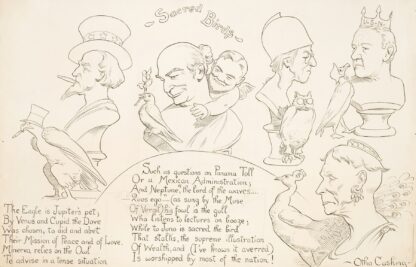 Sacred Birds
U.S.N.
The Eagle is Jupiter's pet;
By Venus and Cupid the Dove
Was chosen, to aid and abet
Their Mission of Peace and of Love.
Minerva relies on the Owl
To advise in a tense situation
Such as questions on Panama Toll
Or a Mexican Administration;
And Neptune, the lord of the waves—
ego—(as sung by the Muse
Of fowl is the gull
Who listens to lectures on booze;
While to Juno is sacred the bird
That stalks, the supreme illustration
Of Wealth, and (I've known it averred)
Is worshipped by most of the nation!
Otho Cushing